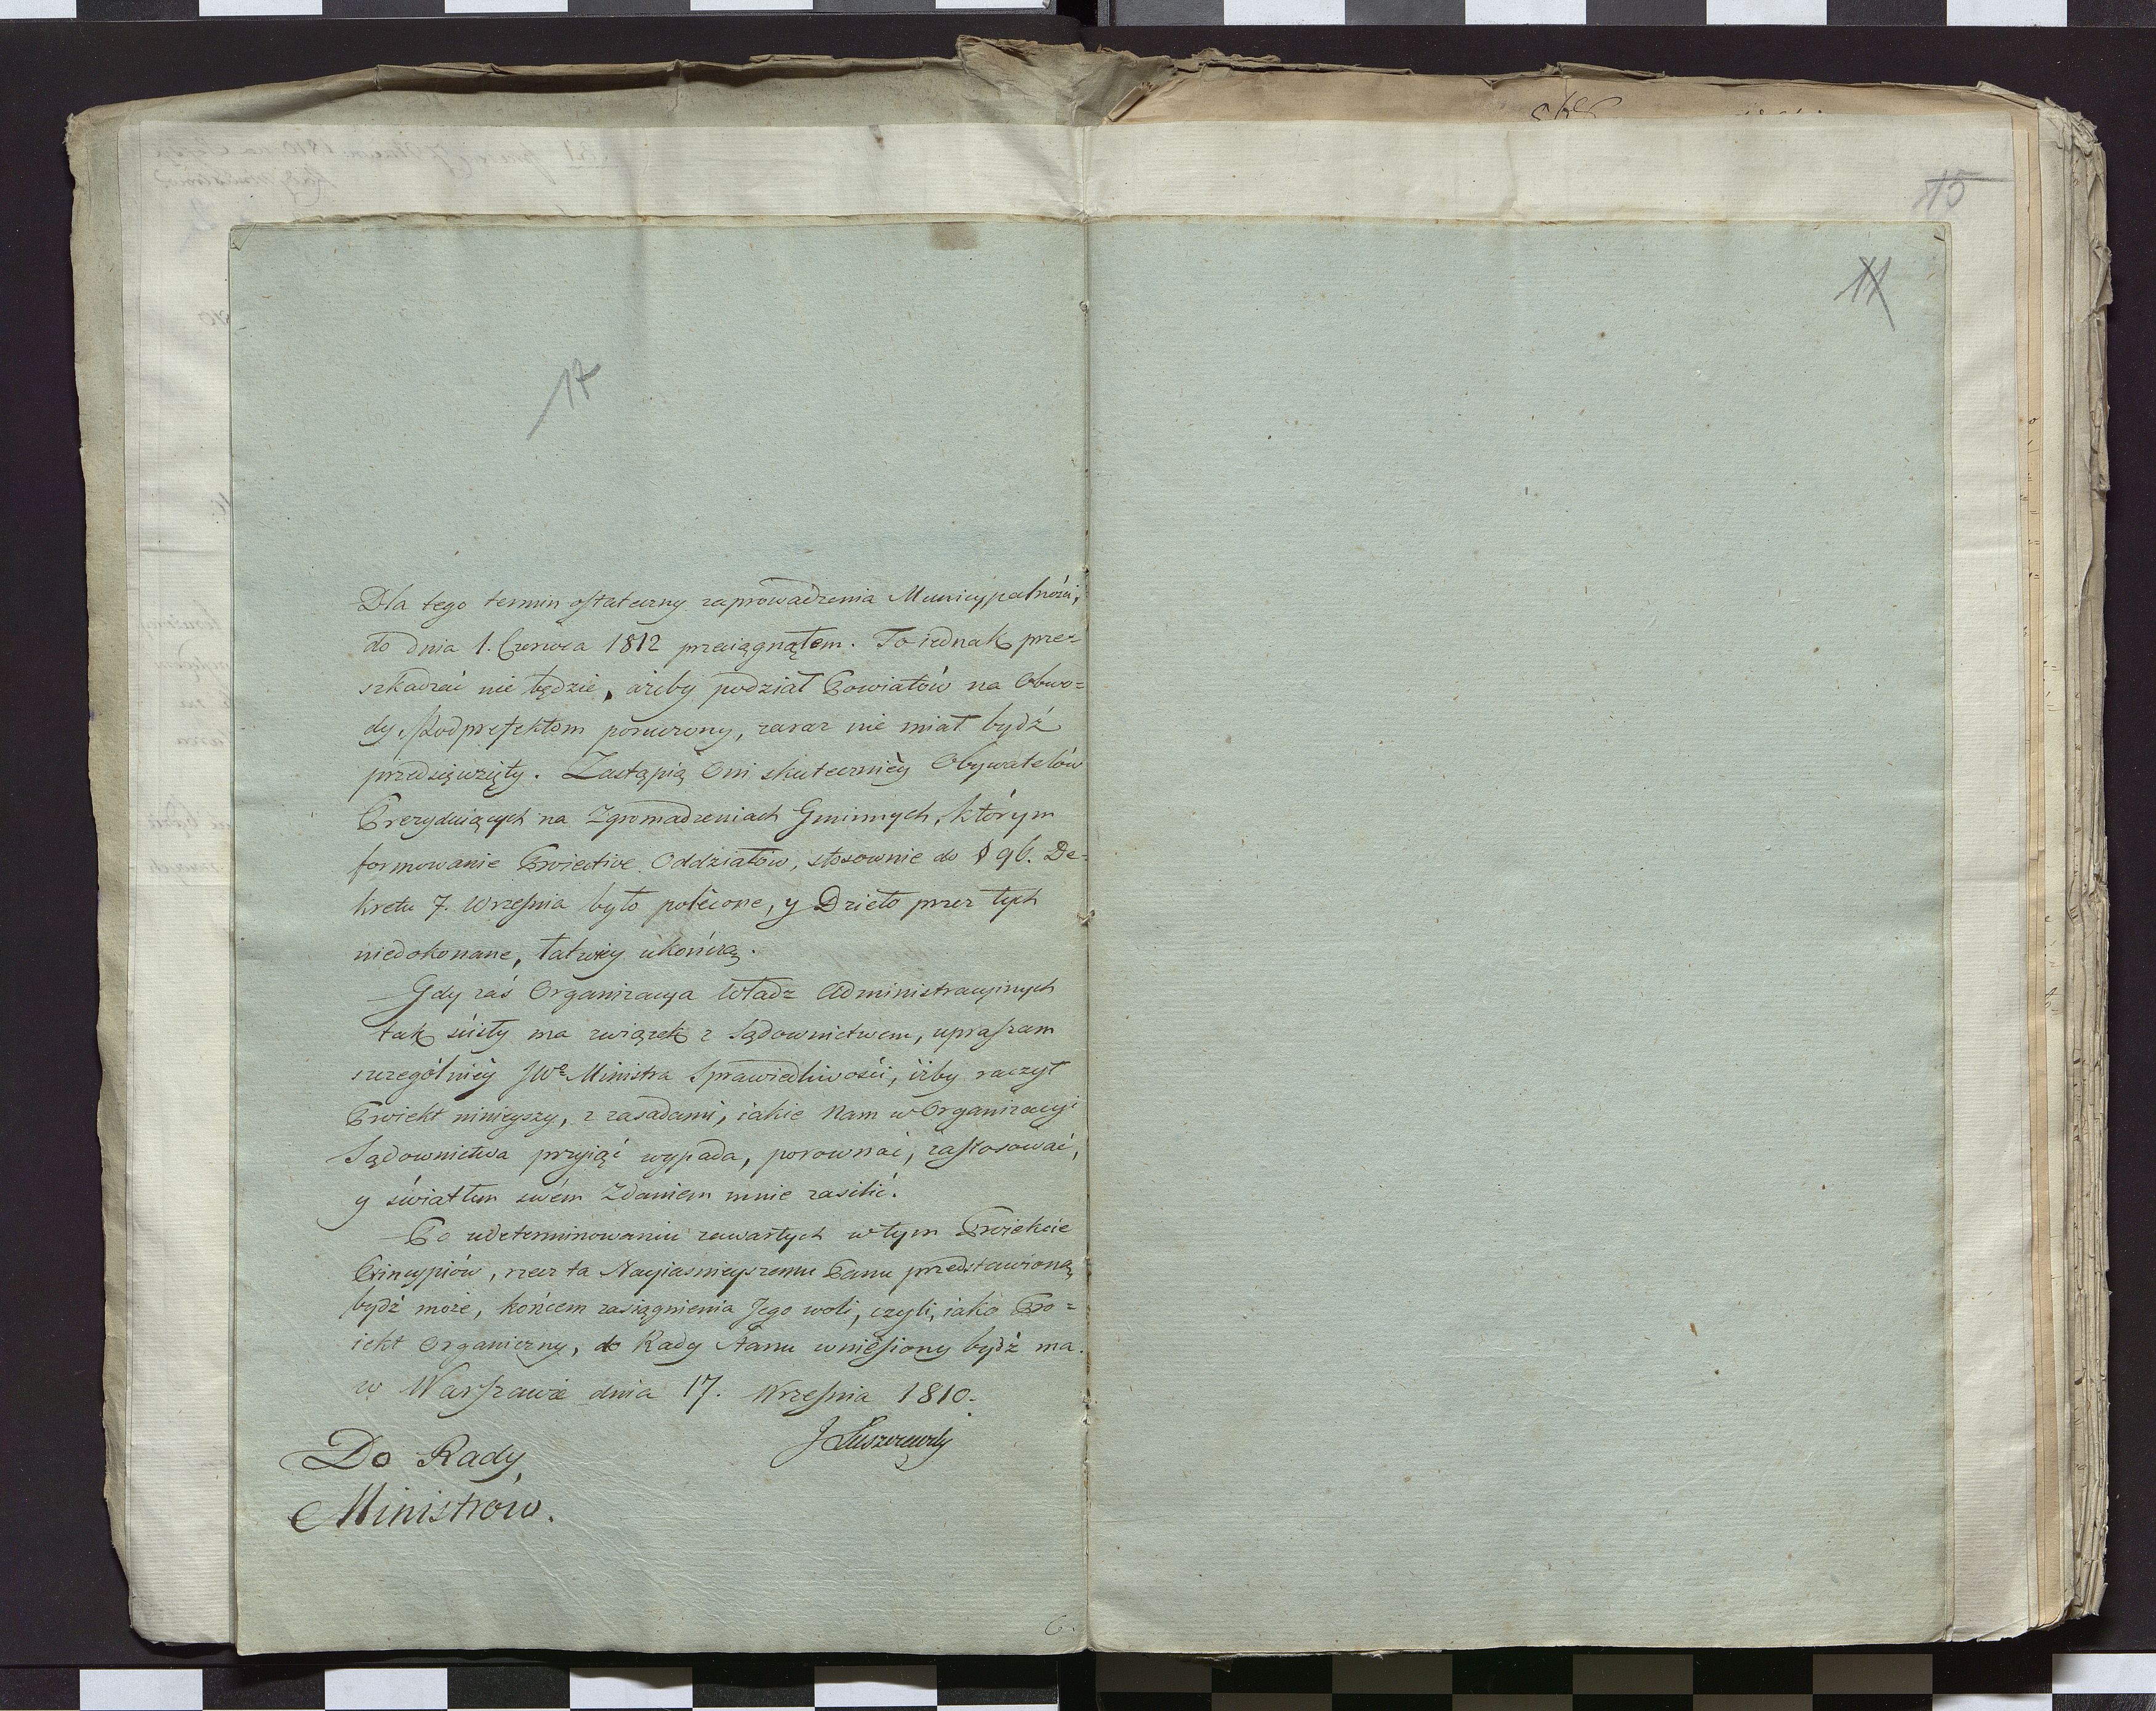 15
11
17
Dla tego termin ostateczny zaprowadzenia Municypalności,
do dnia 1. Czerwca 1812 przeciągnąłem. To iednak prze-
szkadzać nie będzie, ażeby podział Powiatów na Obwo=
dy, Podprefektom poruczony, zaraz nie miał bydź
przedsięwzięty. Zastąpią Oni skuteczniéy Obywatelów
Prezyduiących na Zgromadzeniach Gminnych, którym
formowanie Proiective Oddziałów, stosownie do § 96. De-
kretu 7. Września było polécone, y Dzieło przez tych
niedokonane, łatwiéy ukończą.
Gdy zaś Organizacya Władz Administracyinych
tak ścisły ma związek z Sądownictwem, upraszam
szczególniéy JWo Ministra Sprawiedliwości, iżby raczył
Proiekt ninieyszy, z zasadami, iakie Nam w Organizacyi
Sądownictwa przyiąć wypada, porownać, zastosować,
y światłem swém Zdaniem mnie zasilić.
Po udeterminowaniu zawartych w tym Proiekcie
Princypiów, rzecz ta Nayiaśnieyszemu Panu przedstawioną
bydź może, końcem zasiągnienia Jego woli, czyli, iako Pro=
iekt Organiczny, do Rady Stanu wniésiony bydź ma.
w Warszawie dnia 17. Września 1810.
J Łuszczewski
Do Rady
Ministrów.
6.